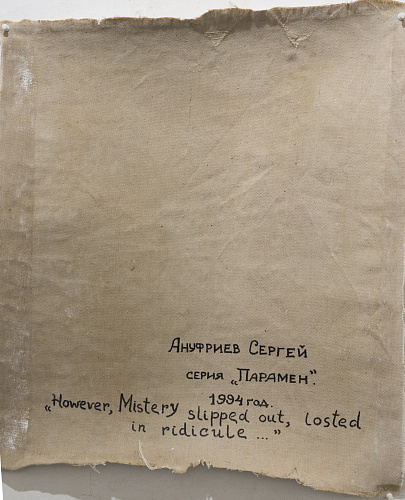 Ануфриев Сергей
серия „Парамен".
1994 год.
„However, Mistery slipped out, losted
in ridicule ..."